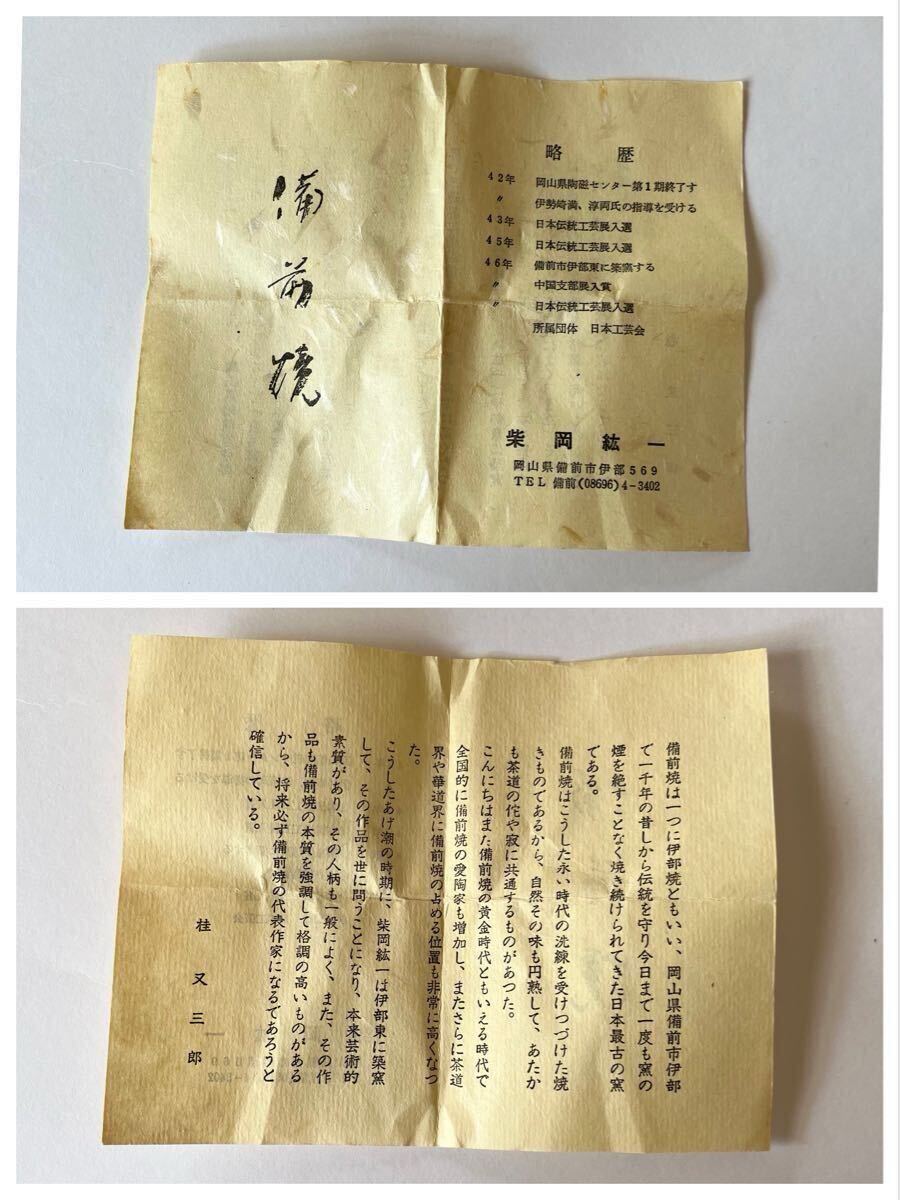 備前焼
略歴
42年 岡山県陶磁センター第1期終了す
〃 伊勢崎満、淳両氏の指導を受ける
43年 日本伝統工芸展入選
45年 日本伝統工芸展入選
46年 備前市伊部東に築窯する
〃 中国支部展入賞
〃 日本伝統工芸展入選
所属団体 日本工芸会
柴岡紘一
岡山県備前市伊部569
TEL 備前(08696)4-3402
備前焼は一つに伊部焼ともいい、岡山県備前市伊部
で一千年の昔しから伝統を守り今日まで一度も窯の
煙を絶すことなく焼き続けられてきた日本最古の窯
である。
備前焼はこうした永い時代の洗練を受けつづけた焼
きものであるから、自然その味も円熟して、あたか
も茶道の侘や寂に共通するものがあつた。
こんにちはまた備前焼の黄金時代ともいえる時代で
全国的に備前焼の愛陶家も増加し、またさらに茶道
界や華道界に備前焼の占める位置も非常に高くなつ
た。
こうしたあげ潮の時期に、柴岡紘一は伊部東に築窯
して、その作品を世に問うことになり、本来芸術的
素質があり、その人柄も一般によく、また、その作
品も備前焼の本質を強調して格調の高いものがある
から、将来必ず備前焼の代表作家になるであろうと
確信している。
桂又三郎